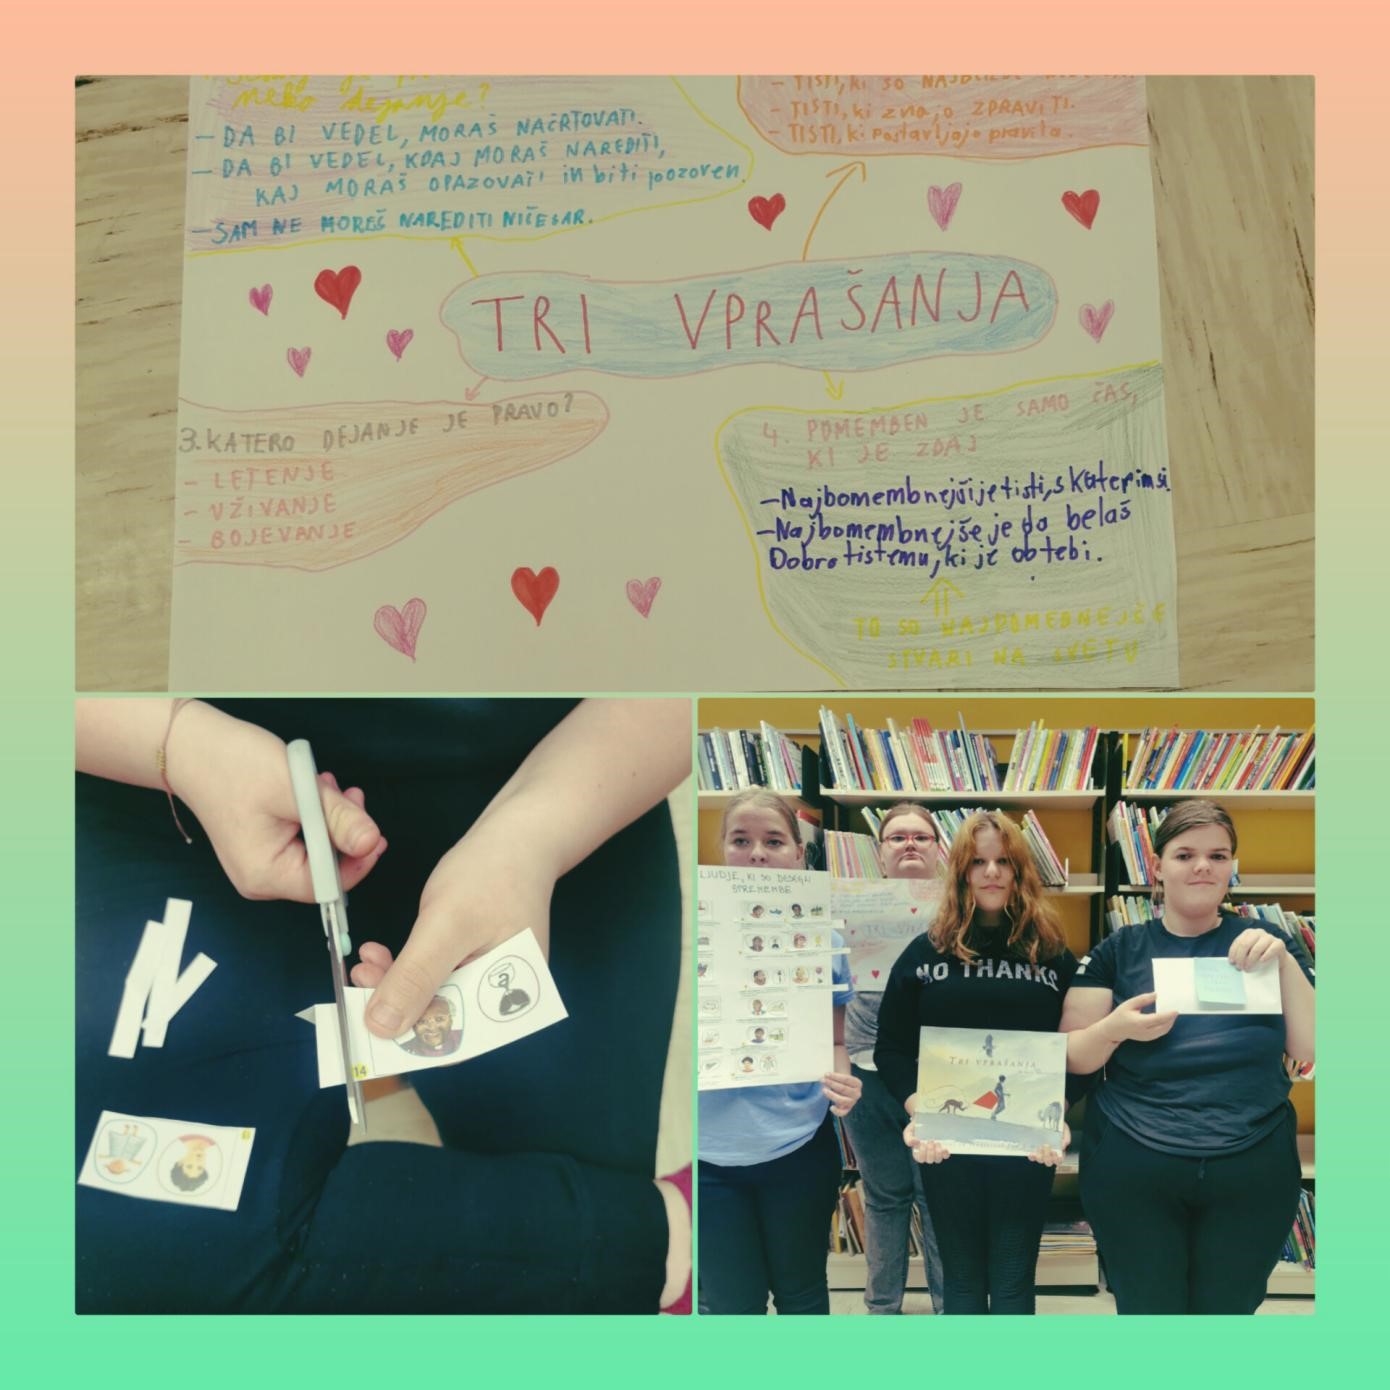 neko dejanje?
- DA BI VEDEL, MORAŠ NAČRTOVATI.
- DA BI VEDEL, KDAJ MORAŠ NAREDITI,
KAJ MORAŠ OPAZOVATI in biti pozoren.
- SAM NE MOREŠ NAREDITI NIČESAR.
- TISTI, ki so
- TISTI, ki znajo ZPRAVITI.
- TISTI, ki Postavljajo pravila.
TRI VPRAŠANJA
3. KATERO DEJANJE JE PRAVO?
- LETENJE
- UŽIVANJE
- BOJEVANJE
4. POMEMBEN JE SAMO ČAS,
KI JE ZDAJ
- Najbomembnejši je tisti, s katerim si.
- Najbomembnejše je da belaš
Dobro tistemu, ki je ob tebi.
TO SO NAJPOMEBNEJČE
STVARI NA SVETU
14
LJUDJE, KI SO DESEGLI
SPREMEMBE
NO THANKS
TRI VPRAŠANJA